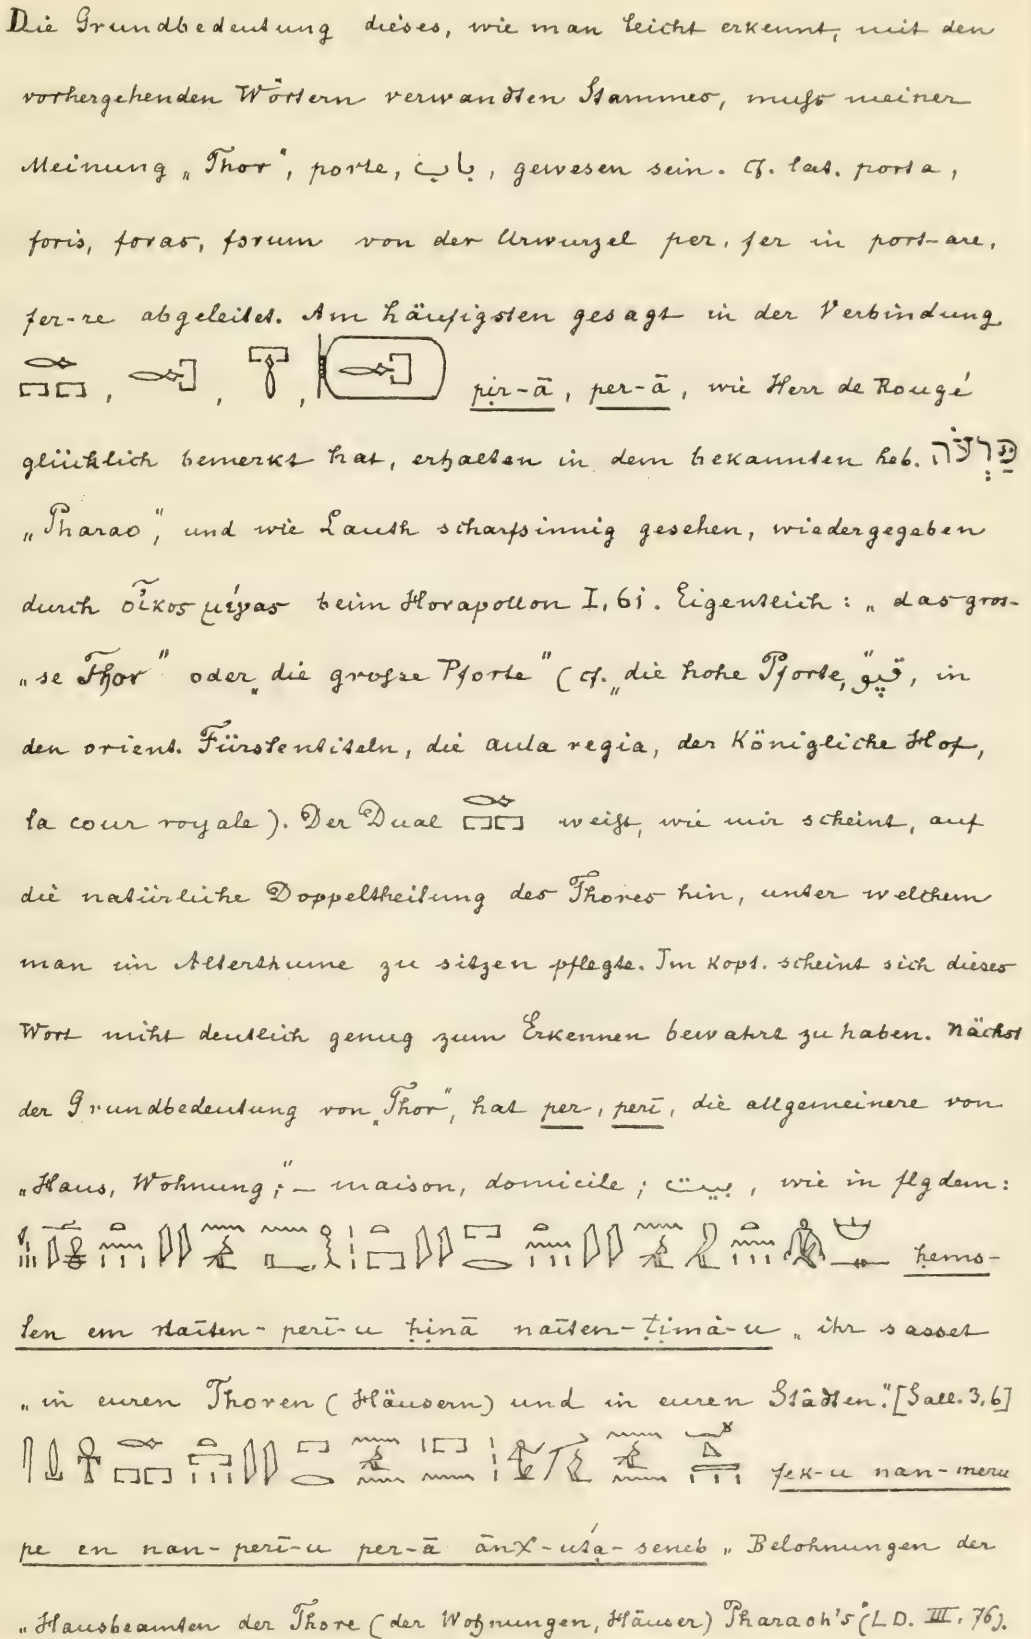 Die Grundbedeutung dieses, wie man leicht erkennt, mit den
vorhergehenden Wörtern verwandten Stammes, muſs meiner
Meinung „Thor“, porte, باب, gewesen sein. Cf. lat. porta,
foris, foras, forum von der Urwurzel per, fer in port-are,
fer-re abgeleitet. Am häufigsten gesagt in der Verbindung
, , , pir-ā, per-ā, wie Herr de Rougé
glücklich bemerkt hat, erhalten in dem bekannten heb. פַּרְעֹה
„Pharao“, und wie Lauth scharfsinnig gesehen, wiedergegeben
durch οἶκος μέγας beim Horapollon I, 61. Eigentlich: „das gros-
„se Thor“ oder „die groſse Pforte“ (cf. „die hohe Pforte, in
den orient. Fürstentiteln, die aula regia, der Königliche Hof,
la cour royale). Der Dual weiſt, wie mir scheint, auf
die natürliche Doppeltheilung des Thores hin, unter welchem
man im Alterthume zu sitzen pflegte. Im Kopt. scheint sich dieses
Wort nicht deutlich genug zum Erkennen bewahrt zu haben. Nächst
der Grundbedeutung von „Thor“, hat per, perī, die allgemeinere von
„Haus, Wohnung;“ – maison, domicile; بيت, wie in flgdem:
ḥems-
ten em naïten-perī-u ḥinā naïten-ṭimȧ-u „ihr sasset
„in euren Thoren (Häusern) und in euren Städten.“ [Sall. 3, 6]
fek-u nan-meru
pe en nan-perī-u per-ā ānχ-uťa-seneb „Belohnungen der
„Hausbeamten der Thore (der Wohnungen, Häuser) Pharaoh's“ (LD. III, 76).